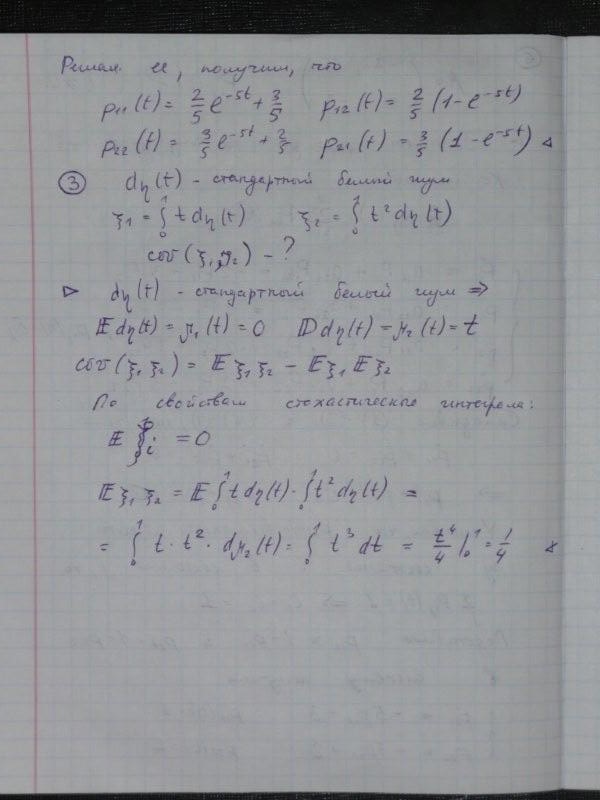 Решая её, получим, что
p₁₁(t) = 2/5 e^{-5t} + 3/5   p₁₂(t) = 2/5 (1 - e^{-5t})
p₂₂(t) = 3/5 e^{-5t} + 2/5   p₂₁(t) = 3/5 (1 - e^{-5t}) ◁
③ dη(t) - стандартный белый шум
ξ₁ = ∫₀¹ t dη(t)   ξ₂ = ∫₀¹ t² dη(t)
cov(ξ₁, ξ₂) - ?
▷ dη(t) - стандартный белый шум ⇒
𝔼 dη(t) = μ₁(t) = 0   𝔻 dη(t) = μ₂(t) = t
cov(ξ₁ ξ₂) = 𝔼 ξ₁ ξ₂ - 𝔼ξ₁ 𝔼ξ₂
По свойствам стохастического интеграла:
𝔼 ξᵢ = 0
𝔼 ξ₁ ξ₂ = 𝔼 ∫₀¹ t dη(t) · ∫₀¹ t² dη(t) =
= ∫₀¹ t · t² · dμ₂(t) = ∫₀¹ t³ dt = t⁴/4 |₀¹ = 1/4 ◁